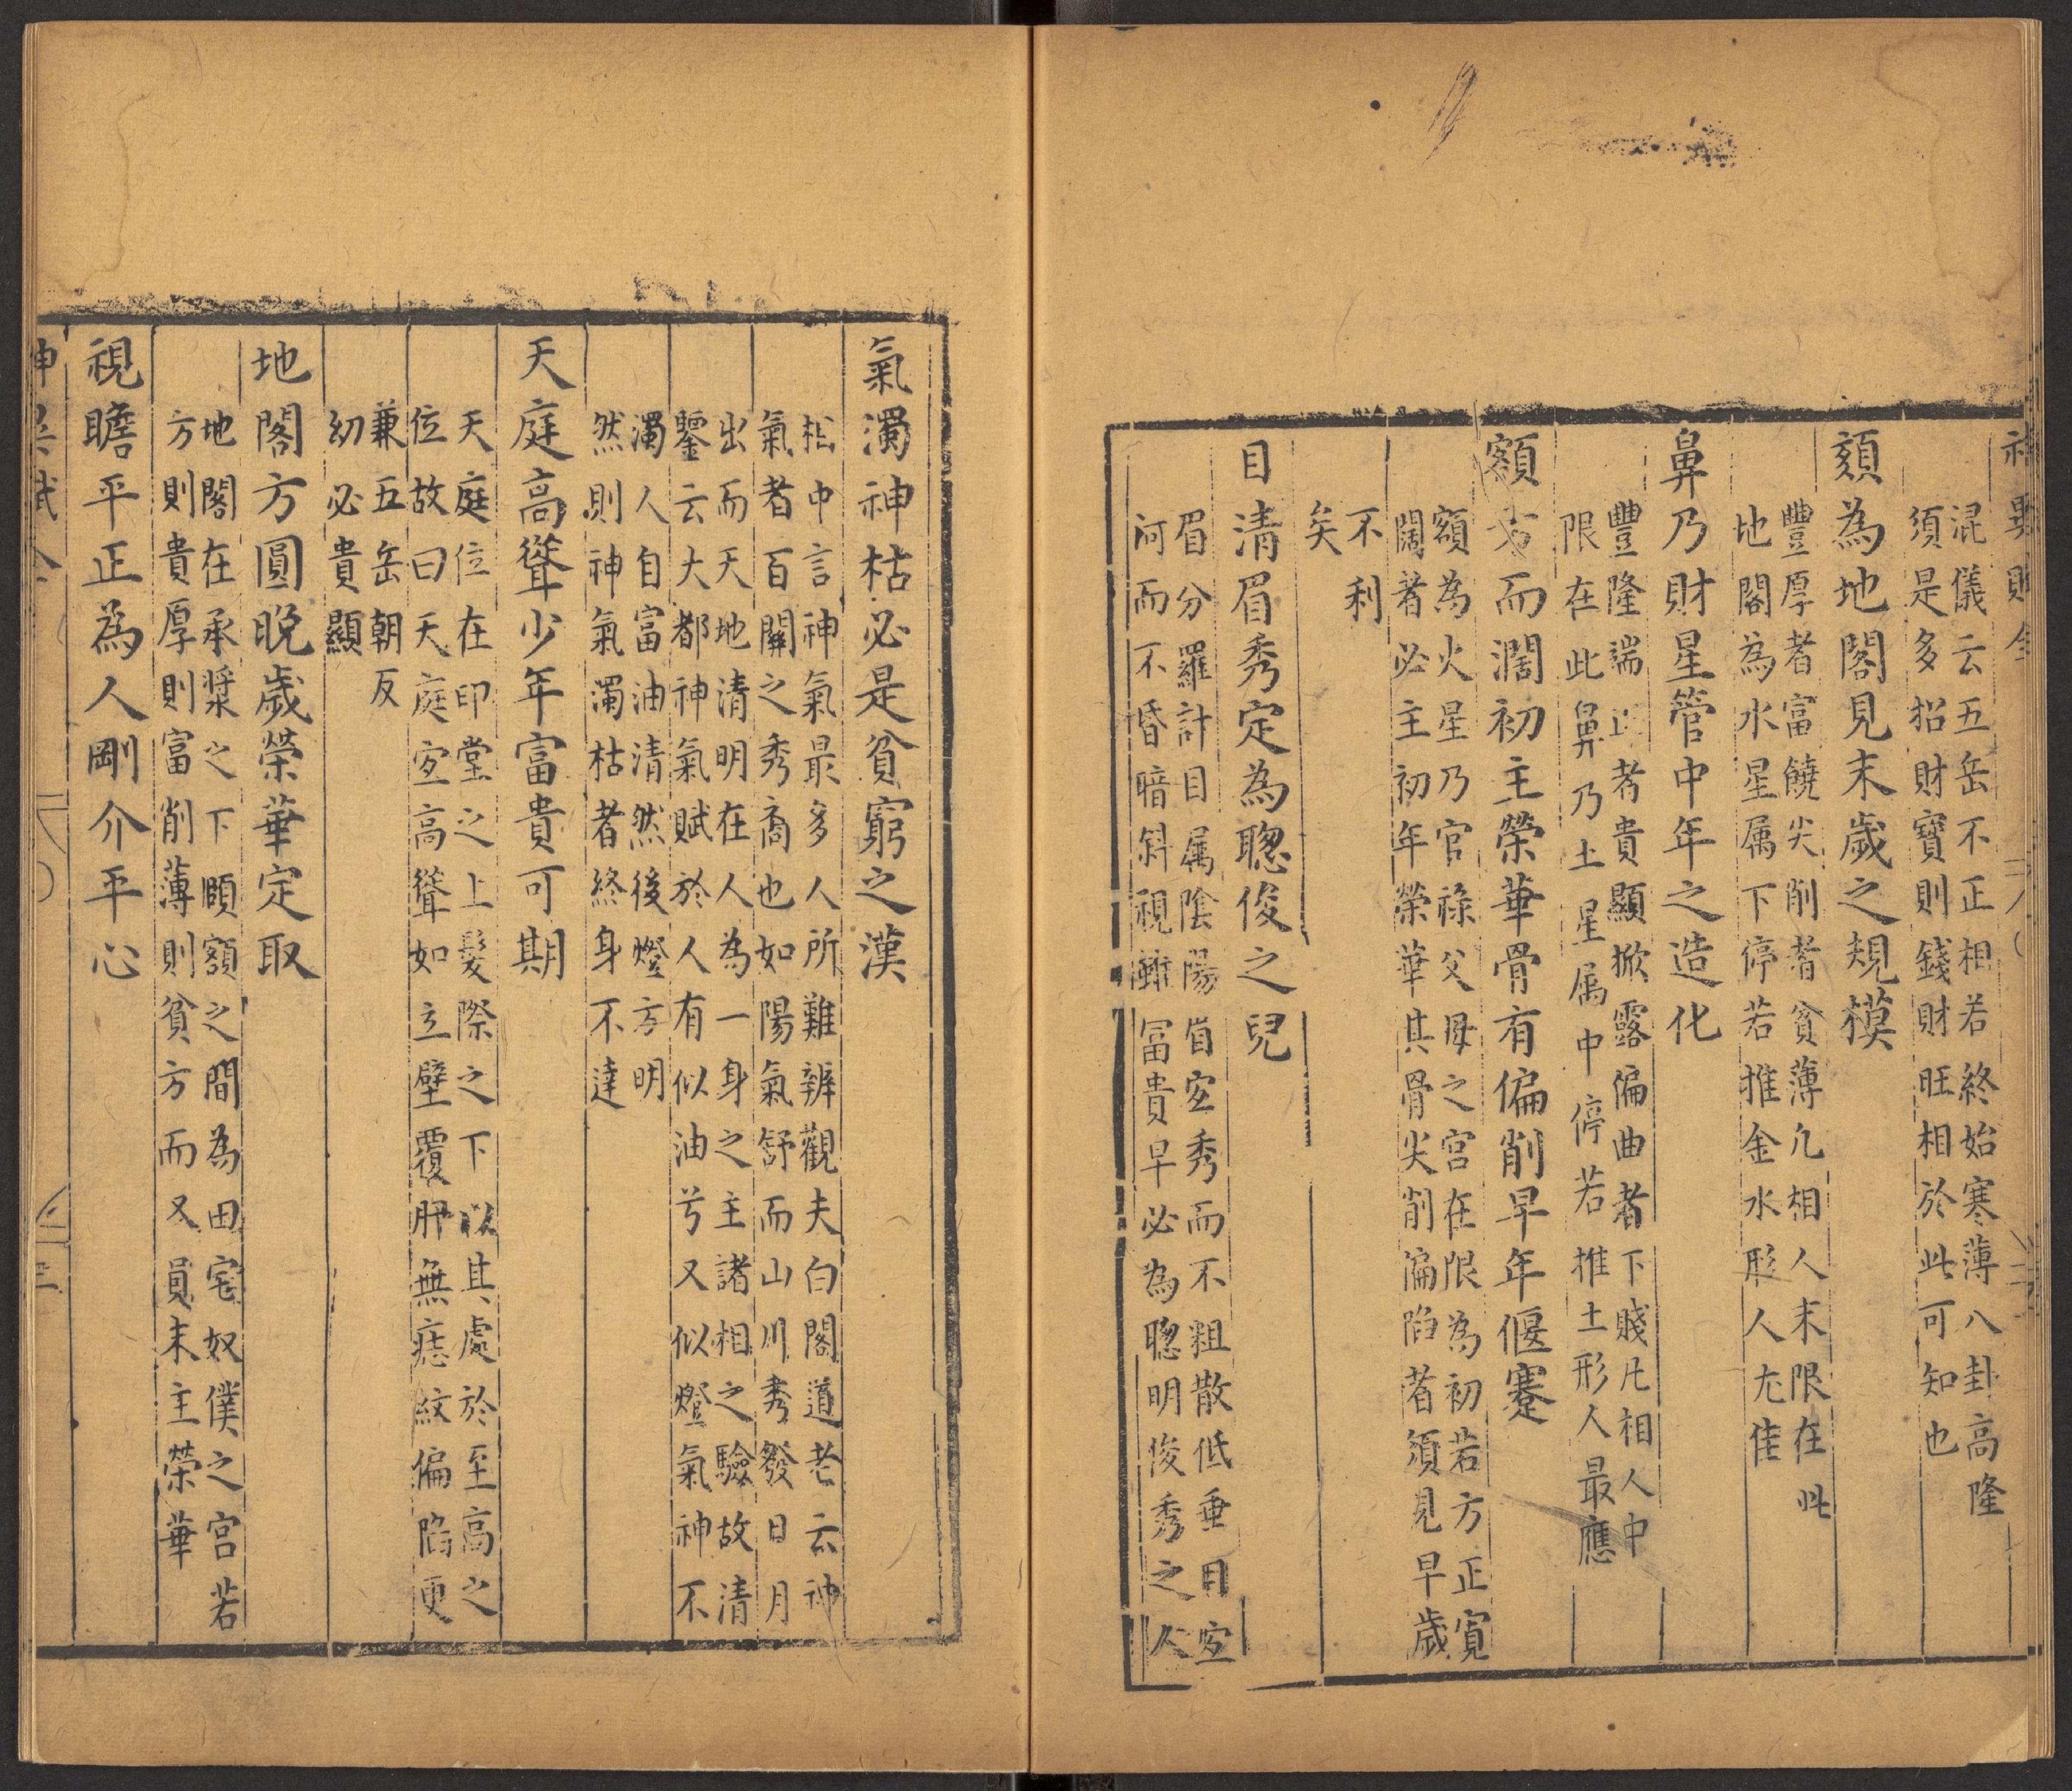 混儀云五岳不正相若終始寒薄八卦高隆
須是多招財寶則錢財旺相於此可知也
頦為地閣見末歲之規模
豐厚者富饒尖削者貧薄凢相人末限在此
地閣為水星属下停若推金水形人尢佳
鼻乃財星管中年之造化
豐隆端正者貴顯掀露偏曲者下賤凡相人中
限在此鼻乃土星属中停若推土形人最應
額方而濶初主榮華骨有偏削早年偃蹇
額為火星乃官祿父母之宫在限為初若方正寛
闊者必主初年榮華其骨尖削偏陷者須見早歲
不利
矣
目清眉秀定為聰俊之兒
眉分羅計目属陰陽眉宜秀而不粗散低垂目宜
河而不昏暗斜視雖冨貴早必為聰明俊秀之人
氣濁神枯必是貧窮之漢
相中言神氣最多人所難辨觀夫白閣道老云神
氣者百關之秀裔也如陽氣舒而山川秀發日月
出而天地清明在人為一身之主諸相之驗故清
鑒云大都神氣賦於人有似油兮又似燈氣神不
濁人自富油清然後燈方明
然則神氣濁枯者終身不達
天庭高聳少年富貴可期
天庭位在印堂之上髮際之下以其處於至高之
位故曰天庭宜高聳如立壁覆肝無痣紋偏陷更
兼五岳朝反
幼必貴顯
地閣方圓晚歲榮華定取
地閣在承漿之下頤額之間為田宅奴僕之宫若
方則貴厚則富削薄則貧方而又員末主榮華
視瞻平正為人剛介平心